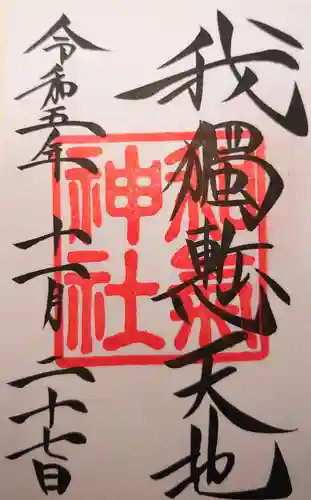 我獨慙天地
和氣神社
令和五年十一月二十七日